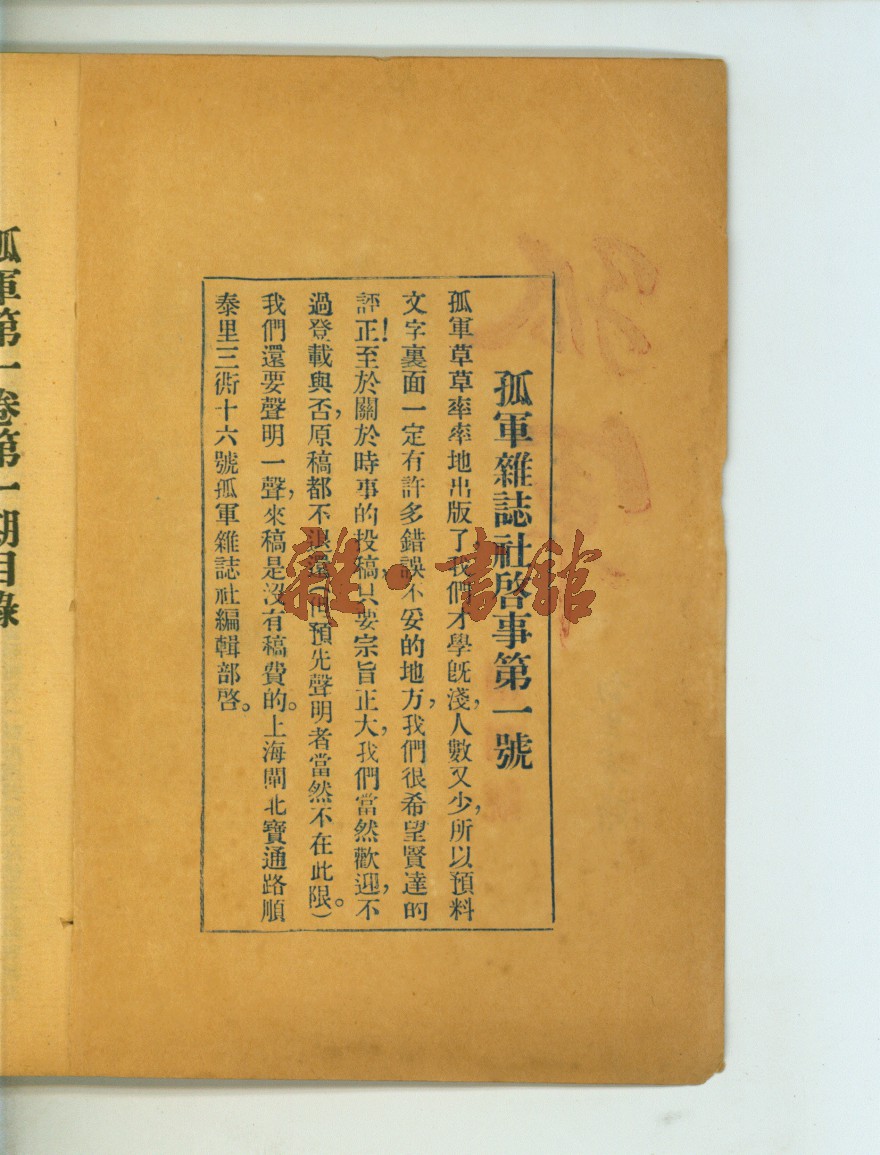 孤軍雜誌社啓事第一號
孤軍草草率率地出版了,我們才學旣淺,人數又少,所以預料
文字裏面一定有許多錯誤不妥的地方,我們很希望賢達的
評正!至於關於時事的投稿,只要宗旨正大,我們當然歡迎,不
過登載與否,原稿都不退還(但預先聲明者當然不在此限)。
我們還要聲明一聲,來稿是沒有稿費的。上海閘北寶通路順
泰里三衖十六號孤軍雜誌社編輯部啓。
孤軍第一卷第一期目錄
雜·書館